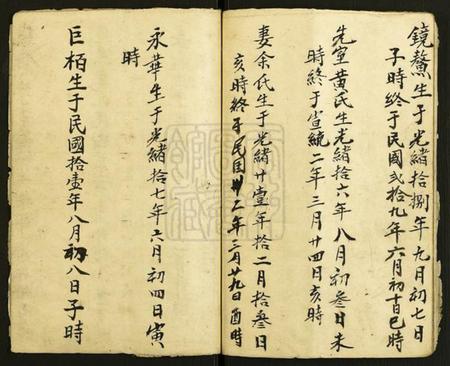 鏡鰲生于光緒拾捌年九月初七日
子時終于民國弍拾九年六月初十日巳時
先室黃氏生光緒拾六年八月初叁日未
時終于宣統二年三月廿四日亥時
妻余氏生于光緒廿壹年拾二月拾叁日
亥時終于民国卅二年二月廿九日酉時
永華生于光緒拾七年六月初四日寅
時
巨栢生于民國拾壹年八月初八日子時